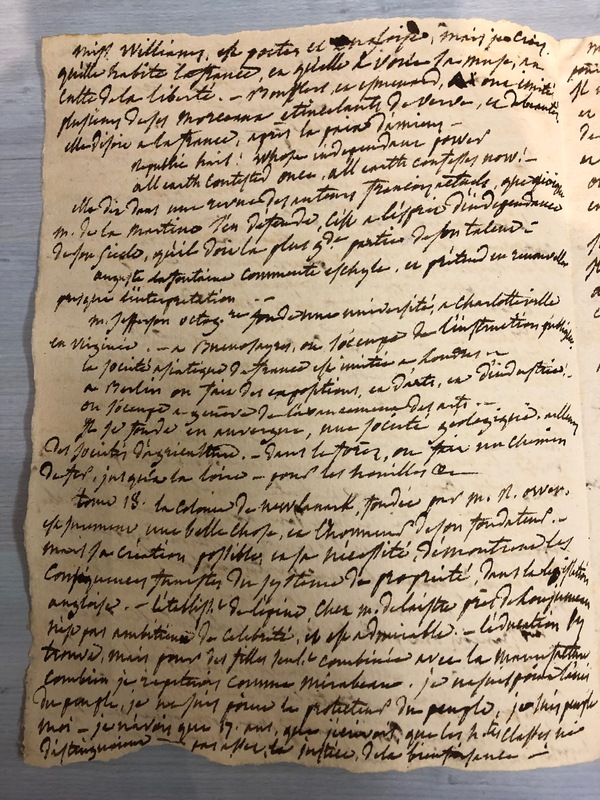 miss Williams, est poete et angloise, mais je crois
qu'elle habite la france, et qu'elle a voué sa muse, au
culte de la liberté. –
plusieurs de ses morceaux etincelants de verve, et de beautés
elle disoit a la france, après la paix d'amiens –
republic hail! whose independant power
all earth contested once, all earth confesses now! –
elle dit dans une revue des auteurs françois actuels, que
m. de la martine s'en defende, c'est a l'esprit d'independance
de son siecle, qu'il doit la plus gde partie de son talent –
auguste la fontaine commente eschyle, et pretend en renouveller
presque l'interpretation –
m. jefferson octogre fonde une université, a charlotteville
en virginie. – a buenosayres, on s'occupe de l'instruction publique
la société asiatique de france est imitée a londres –
a Berlin on fait des expositions, et d'arts, et d'industrie. –
on s'occupe a genève de l'avancement des arts. –
il se fonde en auvergne, une societé geologique. ailleurs
des societés d'agriculture. – dans le forez, on fait un chemin
de fer, jusqu'a la loire – pour les houilles &c –
tome 18. la colonie de newlanark, fondée par m. R. owen.
est vraiment une belle chose, et l'honneur de son fondateur. –
mais sa création possible, et sa nécessité, démontrent les
conséquences funestes du système de propriété, dans la legislation
angloise. – l'etablisst de lepine chez m. delaistre près de
n'est pas ambitieux de celebrité, et est admirable. – l'education s'y
trouve, mais pour des filles seulet combinée avec la manufacture
combien je repeterois comme mirabeau. je ne suis point l'ami
du peuple, je ne suis point le protecteur du peuple, je suis peuple
moi – je n'avois que 17. ans, que j'ecrivois, que les htes classes ne
distinguoient pas assez, la justice, de la bienfaisance –